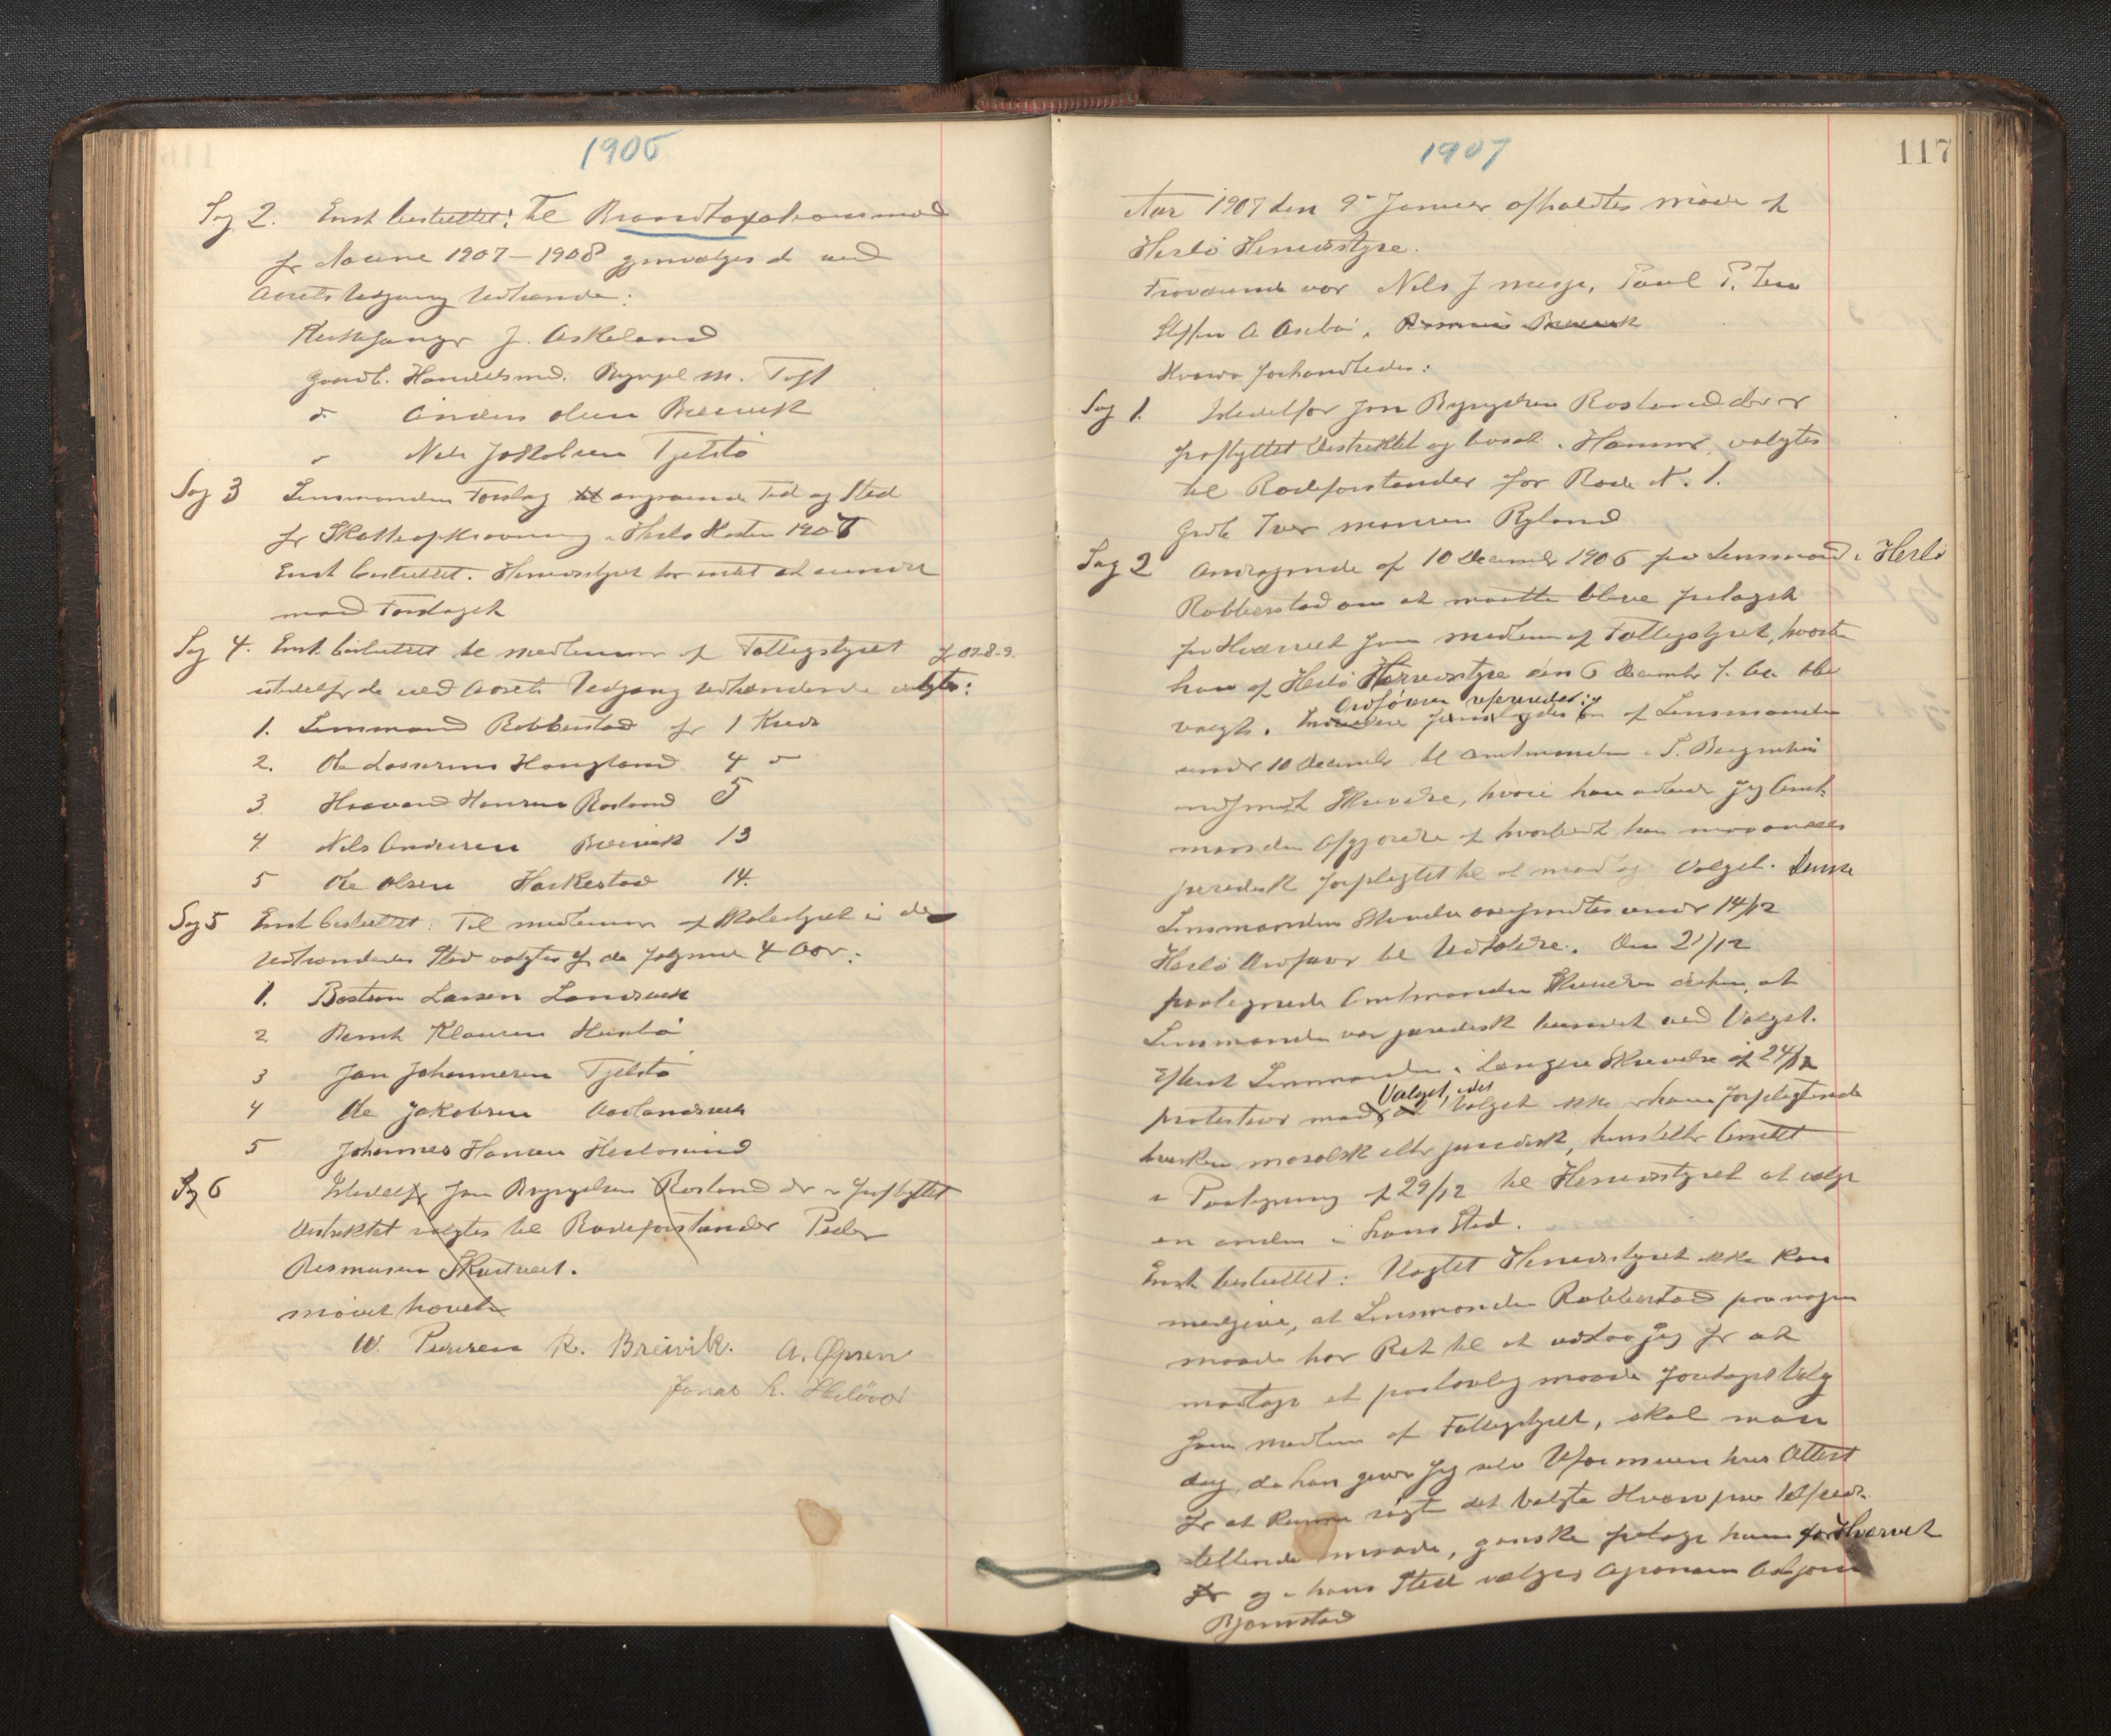 1906
Sag 2. Enst besluttet: til Brandtaxationsmænd
for Aarene 1907-1908 gjenvælges de ved
Aarets Udgang Udtrædende:
J. Askeland
Gaardb. Handelsmd. M. Toft
" Anders Olsen Breivik
" Nils Jakobsen Tjelstø
Sag 3 Lensmandens Forslag angaaende Tid og Sted
for Skatteopkrævning i Herlø Høsten 1907
Enst besluttet. Herredstyret har intet at erindre
mod Forslaget
Sag 4. Enst. besluttet til Medlemmer af Fattigstyret f 07.8.9.
istedetfor de ved Aarets Udgang Udtrædende valgtes:
1. Lensmand Robberstad for 1 Kreds
2. Ole Lassesen Haugland 4 "
3. Haavard Hansen Rosland 5
4. Nils Andersen Breivik 13
5 Ole Olsen Harkestad 14.
Sag 5 Enst besluttet: Til Medlemmer af Skolestyret i de
Udtrædendes Sted valgtes for de følgende 4 Aar:
1. Bastian Larsen Landsvik
2. Bernt Klausen Herlø
3 Jan Johannesen Tjelstø
4 Ole Jakobsen
5 Johannes Hansen Herløsund
Sag 6 Istedetfor Jon Brynjelsen Rosland der er fraflyttet
Distriktet valgtes til Rodeforstander Peder
Rasmusen Skurtveit.
Mødet hævet
W. R. Breivik. A. Øpsen
Jonas L.
1907
117
Aar 1907 den 9de Januar afholdtes Møde af
Herlø Herredstyre.
Fraværende var Nils J Misje, Paul P.
Steffen A Asebø, Rasmus Breivik
Hvorda forhandledes:
Sag 1. Istedetfor Jon Brynjelsen Rosland der er
fraflyttet Distriktet og bosat i Hammer valgtes
til Rodeforstander for Rode N. 1.
Grdb Iver Monsen Ryland
Sag 2 Andragende af 10 December 1906 fra Lensmand i Herlø
Robberstad om at maatte blive fritaget
for Hvervet som Medlem af Fattigstyret, hvortil
han af Herlø Herredstyre den 6 December f. Aa. blev
Ordføreren refererede:
valgt. af Lensmanden
under 10 December til Amtmanden i S. Bergenhus
indsendt Skrivelse, hvori han udbeder sig Amt-
mandens Afgjørelse af hvorvidt han maa ansees
juridisk forpligtet til at modtage Valget. Denne
Lensmandens Skrivelse oversendtes under 14/12
Herlø Ordfører til Udtalelse. Den 21/12
paategnede Amtmanden Skrivelsen derhen, at
Lensmanden var juridisk bundet ved Valget.
Efterat Lensmanden i længere Skrivelse af 24/12
Valget, idet
protesterer mod Valget ikke er ham forpligtende
hverken moralsk eller juridisk, henstiller Amtet
i Paategning af 29/12 til Herredstyret at vælge
en anden i hans Sted.
Enst besluttet: Uagtet Herredstyret ikke kan
medgive, at Lensmanden Robberstad paa nogen
maade har Ret til at undslaa sig for at
modtage et paa lovlig maade foretaget Valg
som Medlem af Fattigstyret, skal man
dog, da han giver sig selv Uformuenheds Attest
for at kunne røgte det valgte Hverv paa tilfreds-
stillende maade, ganske fritage ham for Hvervet
og i hans Sted vælges Agronom
Bjørnstad